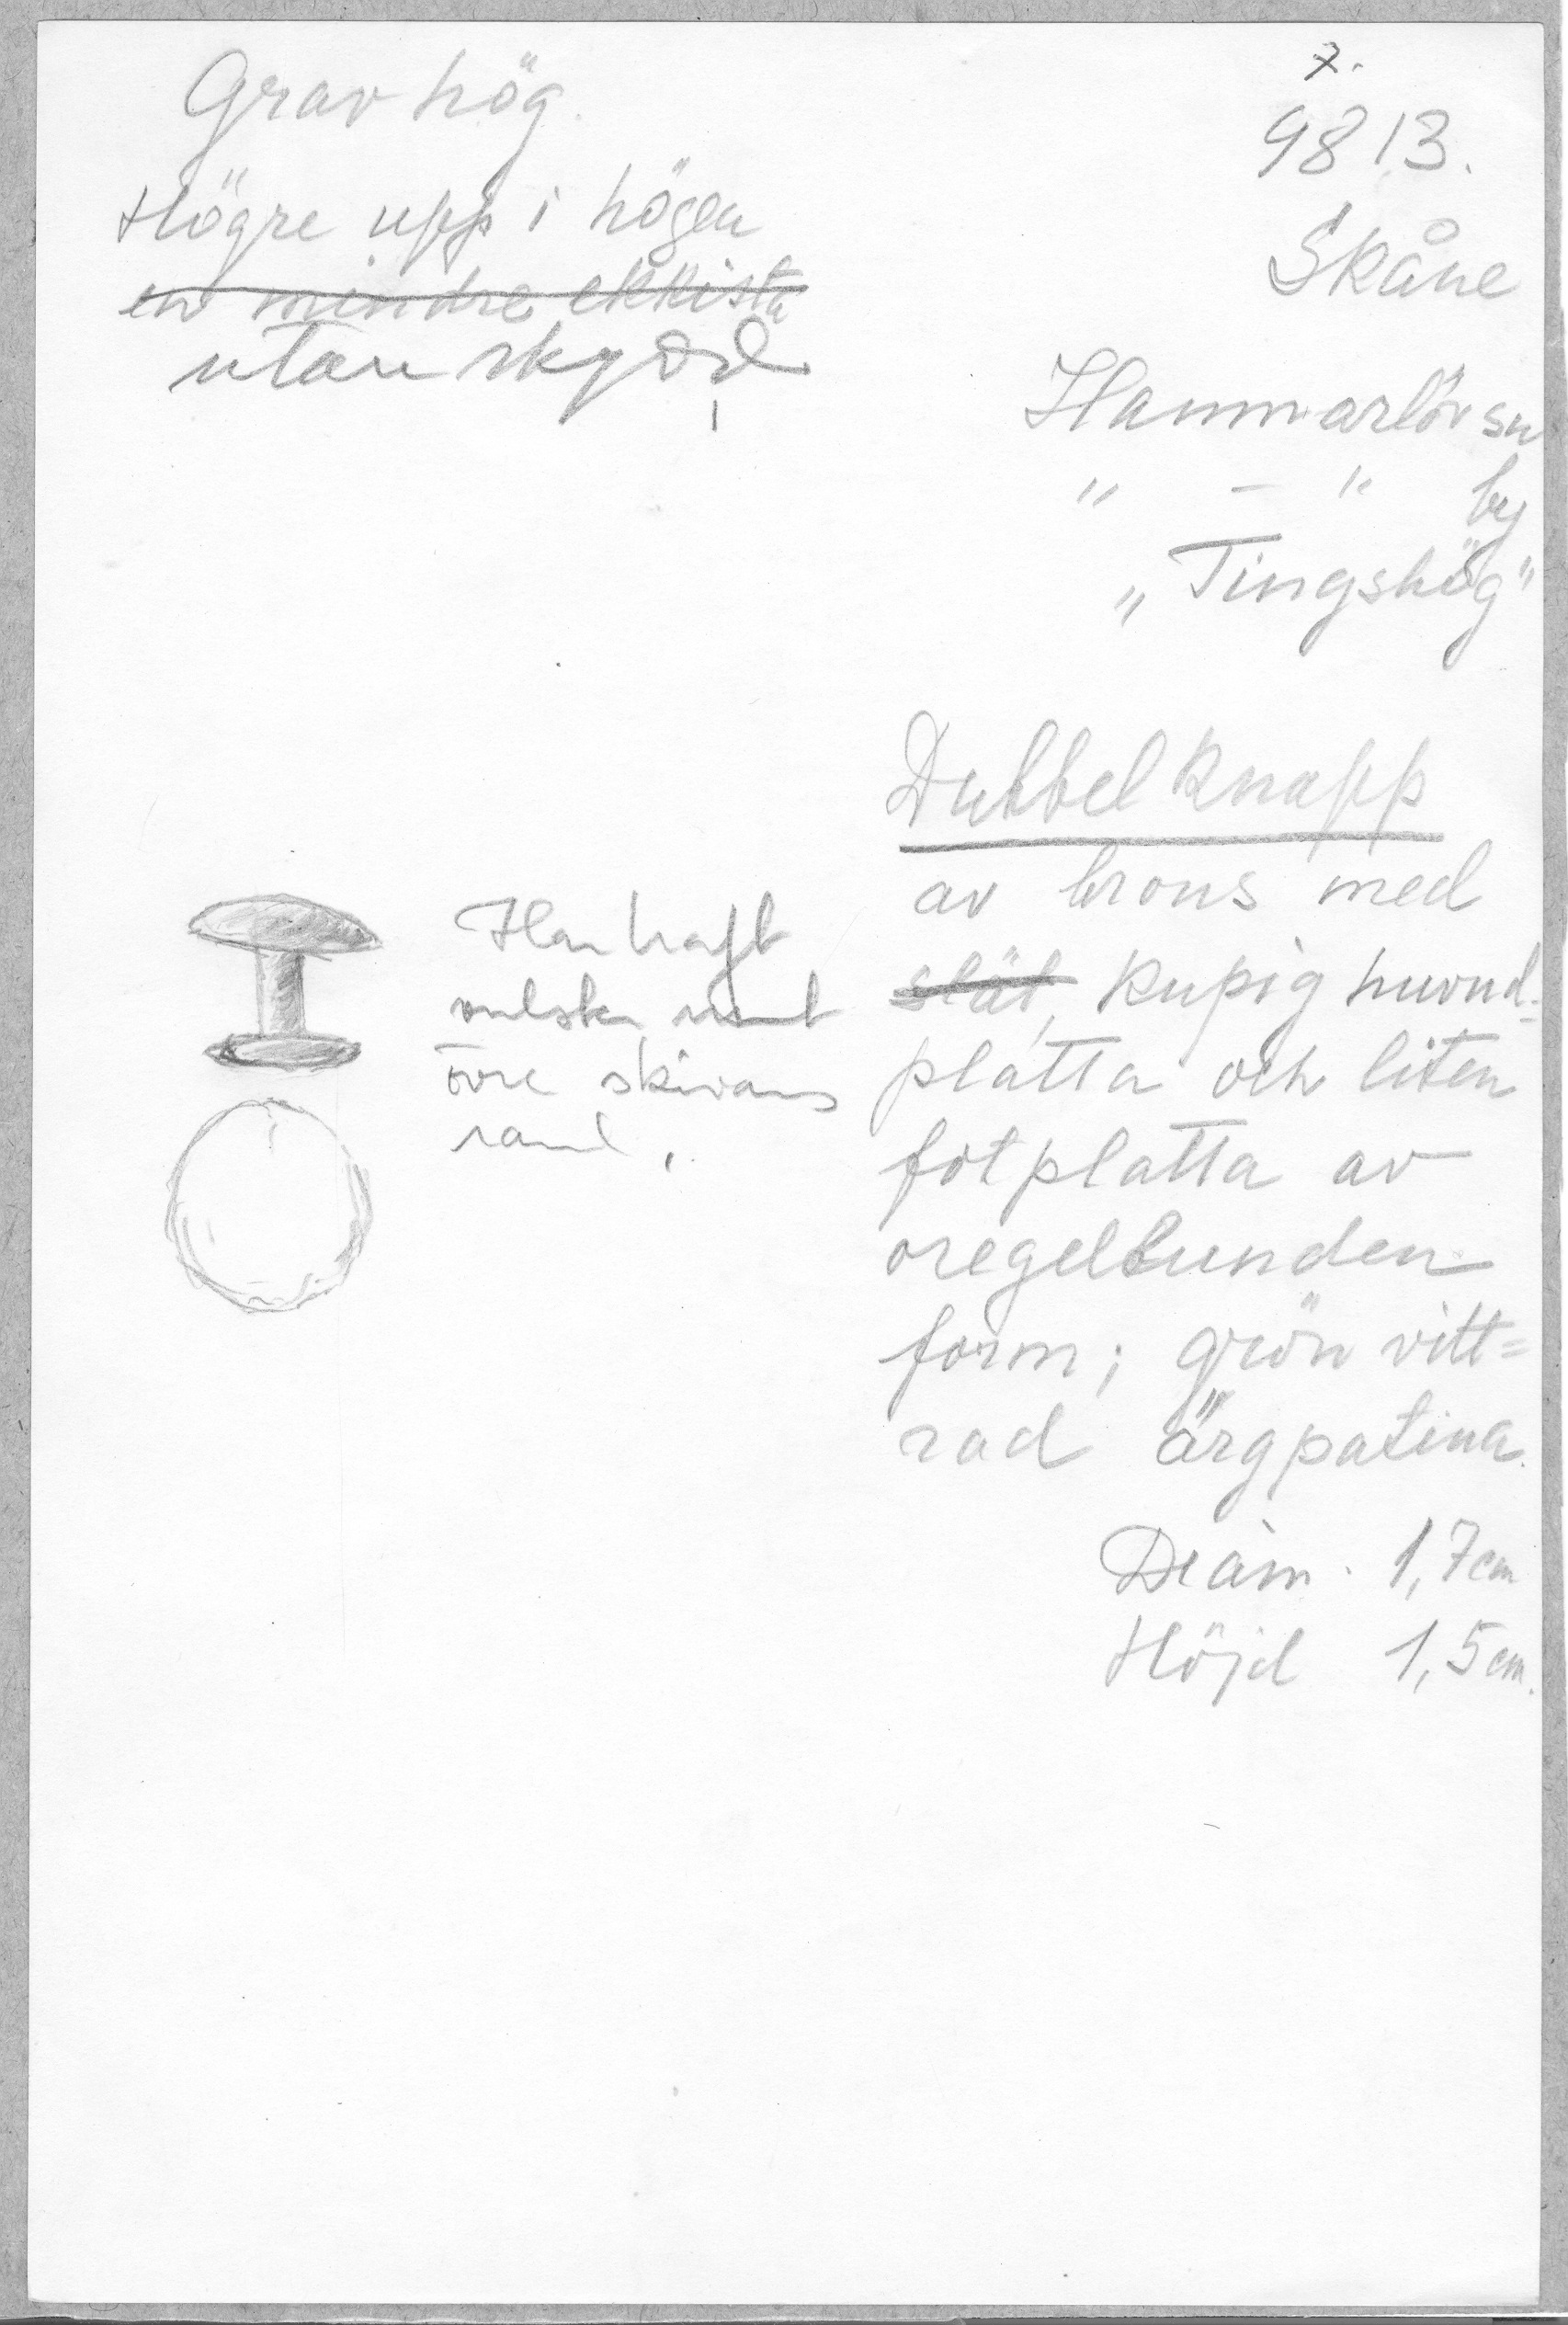 Grav hög.
Högre upp i högen
en mindre ekkista
utan skydd
7.
9813.
Skåne
Hammarlöv sn
" - " by
„Tingshög"
Dubbelknapp
av brons med
slät, kupig huvud-
platta och liten
fotplatta av
oregelbunden
form; grön vitt=
rad ärgpatina.
Diam. 1,7 cm
Höjd 1,5 cm.
Har haft
vulst runt
övre skivans
rand.